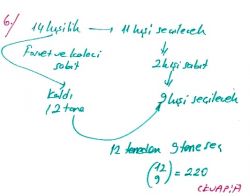 6.) 14 kişilik → 11 kişi seçilecek
Forvet ve kaleci
sabit
2 kişi sabit
Kaldı
12 tane
9 kişi seçilecek
12 taneden 9 tane seç
(12 9) = 220
CEVAP: A